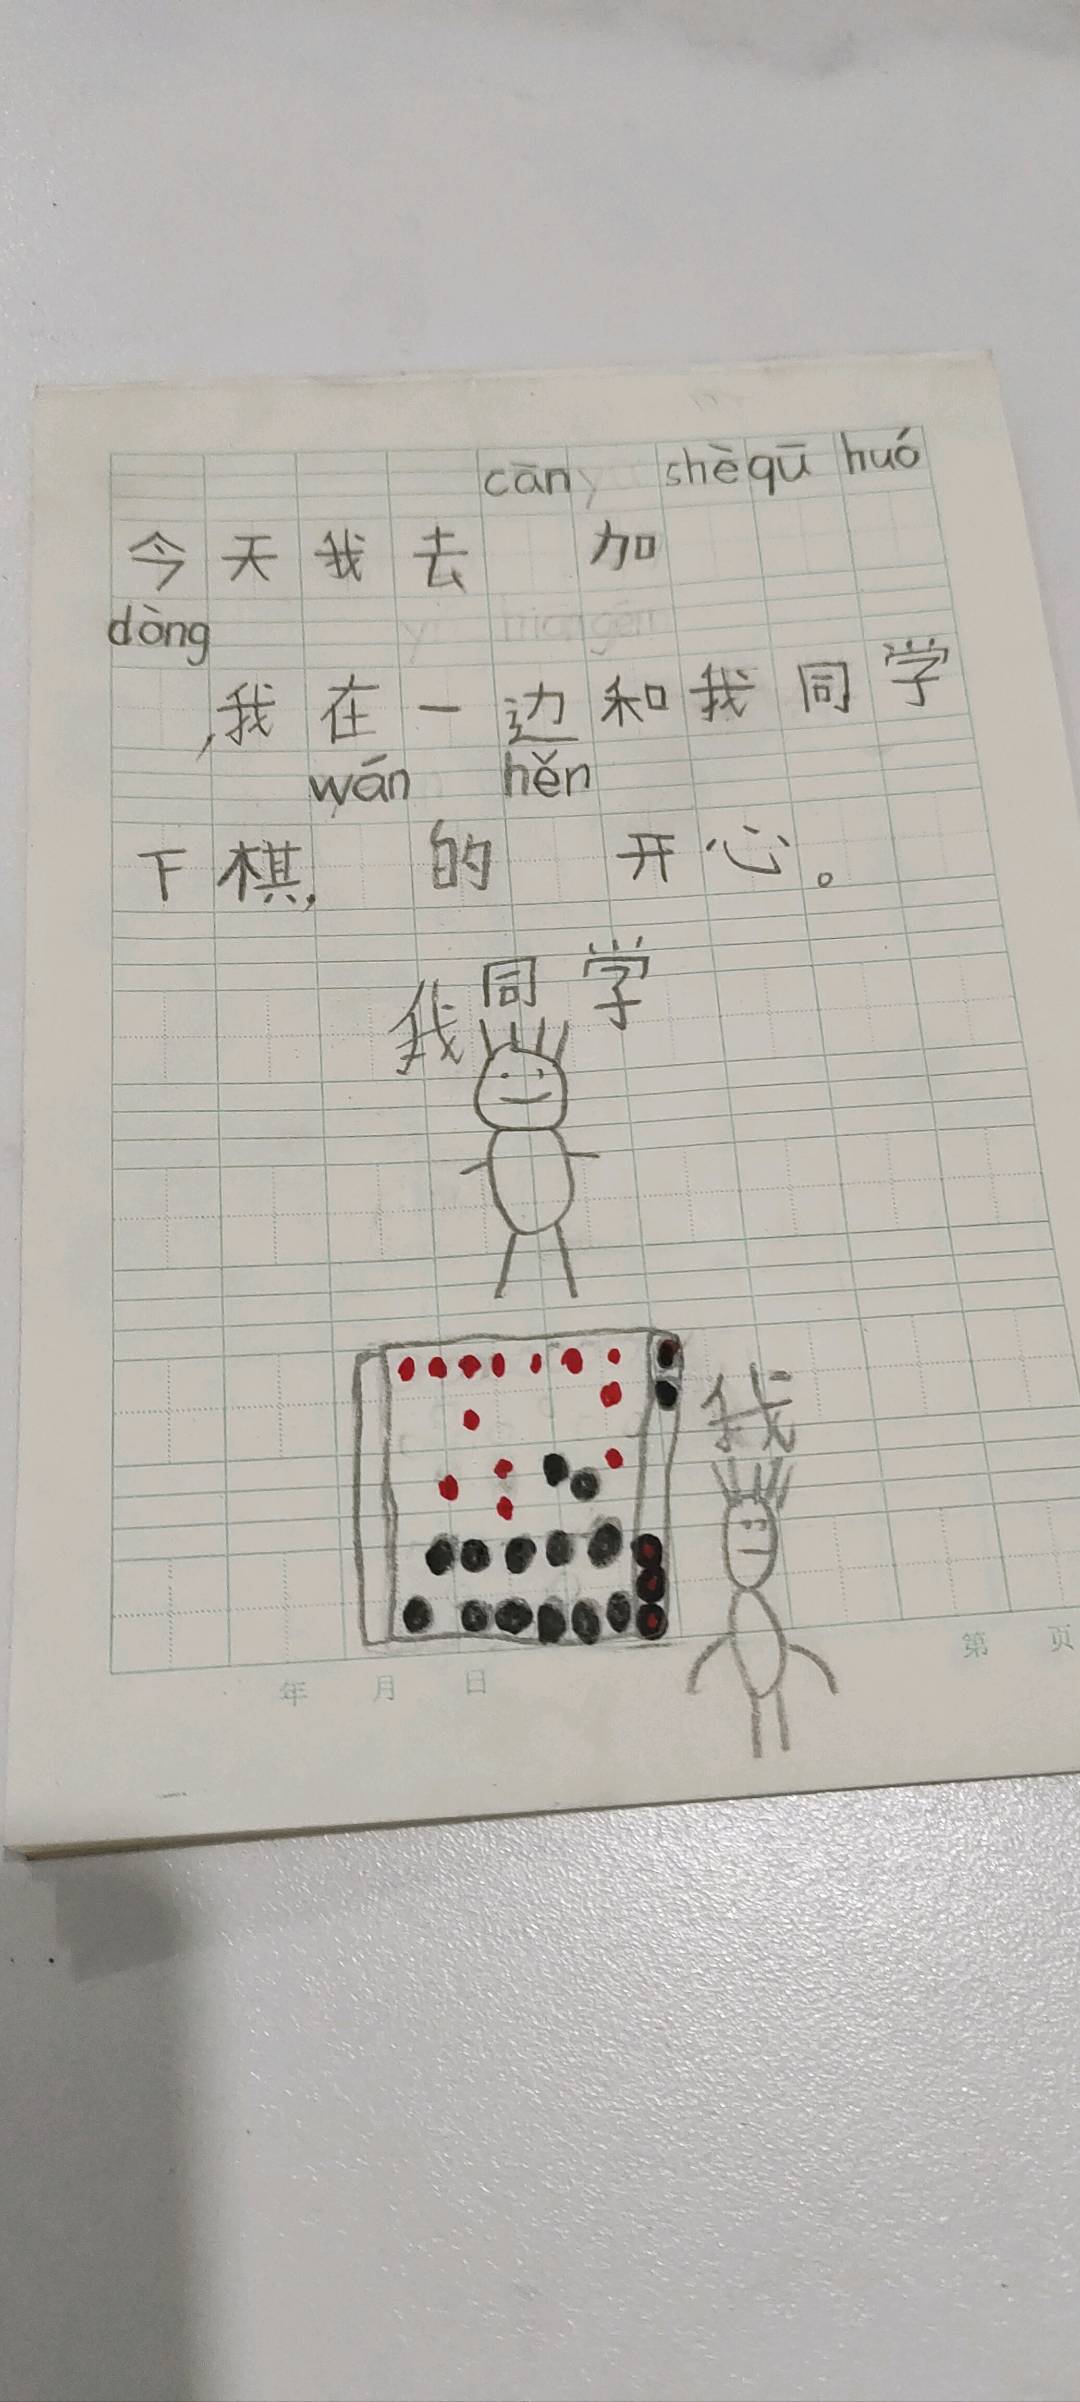 cān shèqū huó
今天我去 加
dòng
,我在一边和我同学
wán hěn
下棋, 的 开心。
我同学
我
年 月 日
第 页